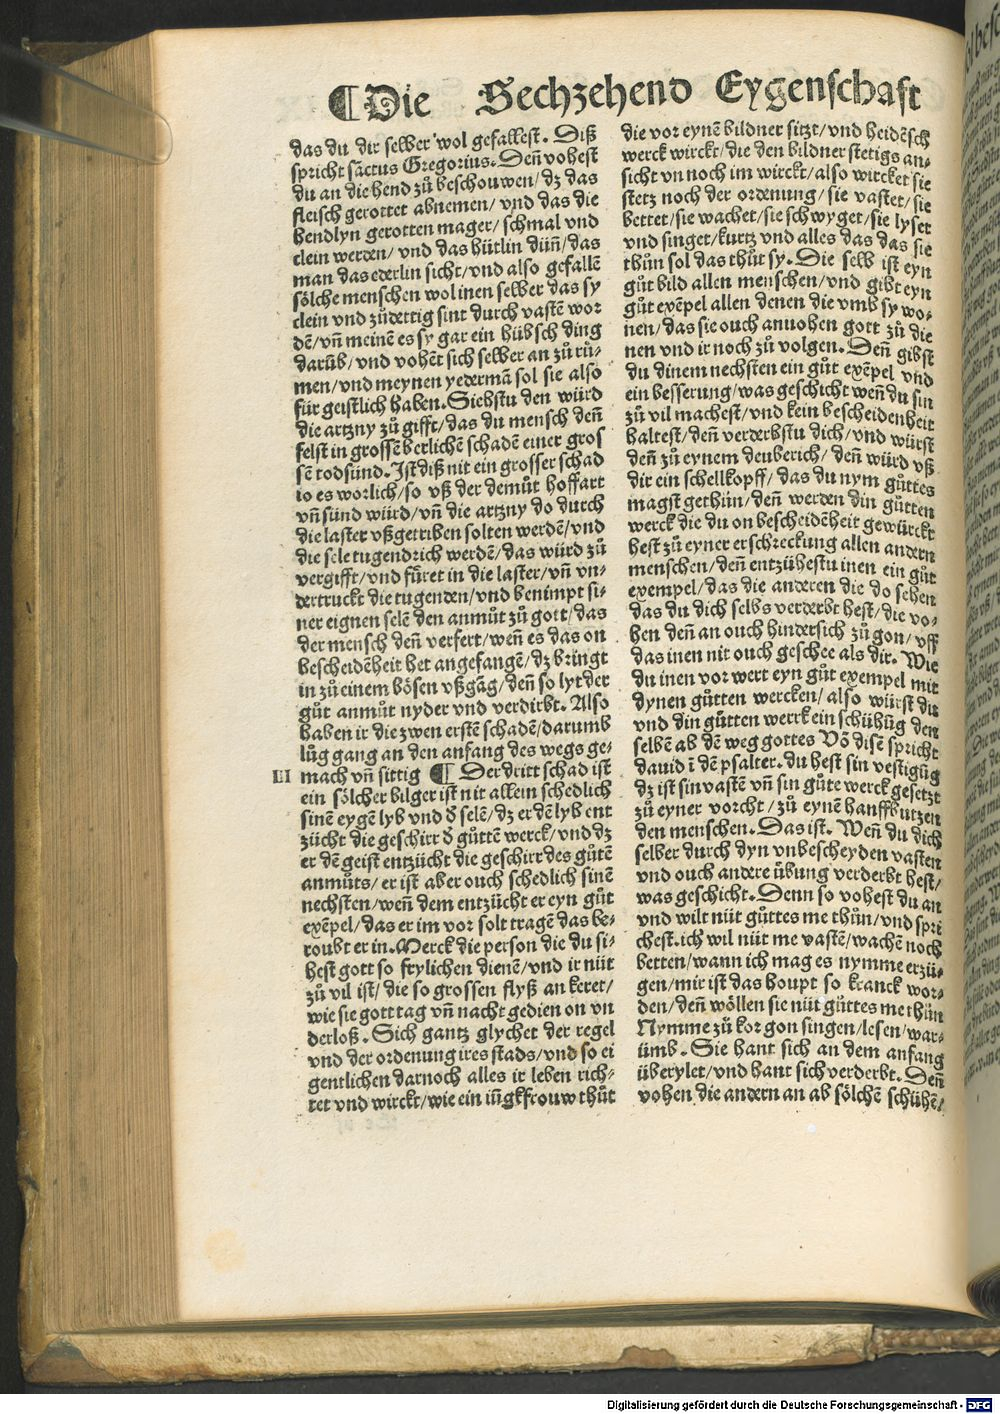 ¶Die Sechzehend Eygenschafft
das du dir selber wol gefallest. Diß
spricht sāctus Gregorius. Deñ vohest
du an die hend zů beschouwen/dz das
fleisch gerottet abnemen/vnd das die
hendlyn gerotten mager/schmal vnd
clein werden/vnd das hütlin düñ/das
man das ederlin sicht/vnd also gefallē
sölche menschen wol inen selber das sy
clein vnd zůdettig sint durch vastē wor
dē/vñ meinē es sy gar ein hübsch ding
darūb/vnd vohēt sich selber an zů rü-
men/vnd meynen yedermā sol sie also
für geistlich haben. Siehstu den würd
die artzny zů gifft/das du mensch deñ
felst in grossē herlichē schadē einer gros
sē todsünd. Ist diß nit ein grosser schad
io es worlich/so vß der demůt hoffart
vñ sünd würd/vñ die artzny do durch
die laster vßgetriben solten werdē/vnd
die sele tugendrich werdē/das würd zů
vergifft/vnd fůret in die laster/vñ vn-
dertruckt die tugenden/vnd benimpt si-
ner eignen selē den anmůt zů gott/das
der mensch deñ verfert/weñ es das on
bescheidēheit het angefangē/dz bringt
in zů einem bösen vßgāg/deñ so lyt der
gůt anmůt nyder vnd verdirbt. Also
haben ir die zwen erstē schadē/darumb
lůg gang an den anfang des wegs ge-
III mach vñ sittig ¶ Der dritt schad ist
ein sölcher bilger ist nit allein schedlich
sinē eygē lyb vnd d̄ selē/dz er dē lyb ent
zücht die geschirr d̄ gůttē werck/vnd dz
er dē geist entzücht die geschirr des gůtē
anmůts/er ist aber ouch schedlich sinē
nechsten/weñ dem entzücht er eyn gůt
exēpel/das er im vor solt tragē das be-
roubt er in. Merck die person die du si-
hest gott so frylichen dienē/vnd ir nüt
zů vil ist/die so grossen flyß an keret/
wie sie gott tag vñ nacht gedien on vn
derloß. Sich gantz glychet der regel
vnd der ordenung ires stads/vnd so ei
gentlichen darnoch alles ir leben rich-
tet vnd wirckt/wie ein iūgkfrouw thůt
die vor eynē bildner sitzt/vnd heidēsch
werck wirckt/die den bildner stetigs an-
sicht vn noch im wirckt/also wircket sie
stetz noch der ordenung/sie vastet/sie
bettet/sie wachet/sie schwyget/sie lyset
vnd singet/kurtz vnd alles das das sie
thůn sol das thůt sy. Die selb ist eyn
gůt bild allen menschen/vnd gibt eyn
gůt exēpel allen denen die vmb sy wo-
nen/das sie ouch anuohen gott zů die
nen vnd ir noch zů volgen. Deñ gibst
du dinem nechsten ein gůt exēpel vnd
ein besserung/was geschicht weñ du sin
zů vil machest/vnd kein bescheidenheit
haltest/deñ verderbstu dich/vnd würst
deñ zů eynem deuberich/deñ würd vß
dir ein schellkopff/das du nym gůttes
magst gethün/deñ werden din gůtten
werck die du on bescheidēheit gewürckt
hest zů eyner erschreckung allen andern
menschen/deñ entzühestu inen ein gůt
exempel/das die anderen die do sehen
das du dich selbs verderbt hest/die vo-
hen deñ an ouch hindersich zů gon/vff
das inen nit ouch geschee als dir. Wie
du inen vor wert eyn gůt exempel mit
dynen gůtten wercken/also würst du
vnd din gůtten werck ein schühūg den
selbē ab dē weg gottes Vō disē spricht
dauid ī dē psalter. du hest sin vestigūg
dz ist sin vastē vñ sin gůte werck gesetzt
zů eyner vorcht/zů eynē hanffbutzen
den menschen. Das ist. Weñ du dich
selber durch dyn vnbescheyden vasten
vnd ouch andere übung verderbt hest/
was geschicht. Denn so vohest du an
vnd wilt nüt gůttes me thůn/vnd spri
chest. ich wil nüt me vastē/wachē noch
betten/wann ich mag es nymme erzü-
gen/mir ist das houpt so kranck wor-
den/deñ wöllen sie nüt gůttes me thůn
Nymme zů kor gon singen/lesen/war-
ümb. Sie hant sich an dem anfang
überylet/vnd hant sich verderbt. Deñ
vohen die andern an ab sölchē schühē/
Digitalisierung gefördert durch die Deutsche Forschungsgemeinschaft - DFG